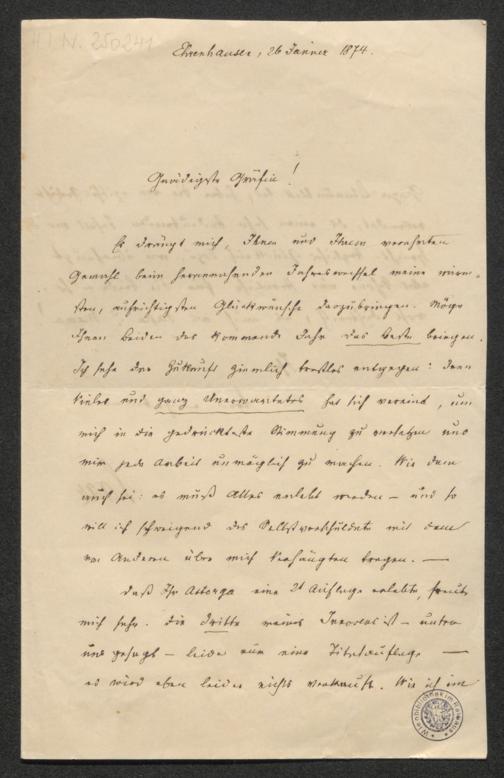 H.I.N. 250241
Ehrenhausen, 26 Jänner 1874.
Gnädigste Gräfin!
Es drängt mich, Ihnen und Ihrem verehrten
Gemahl beim herannahenden Jahreswechsel meine wärm-
sten, aufrichtigsten Glückwünsche darzubringen. Möge
Ihnen Beiden das kommende Jahr das Beste bringen.
Ich sehe der Zukunft ziemlich trostlos entgegen: denn
Vieles und ganz Unerwartetes hat sich vereint, um
mich in die gedrückteste Stimmung zu versetzen und
mir jede Arbeit unmöglich zu machen. Wie dem
auch sei: es muß Alles erlebt werden – und so
will ich schweigend das Selbstverschuldete mit dem
von Anderen über mich Verhängten tragen. —
Daß Ihr Astorga eine 2t Auflage erlebte, freut
mich sehr. Die Dritte meines ist – unter
uns gesagt – leider nur eine Titelauflage —
es wird eben leider nichts verkauft. Wie ich im
Wienbibliothek im Rathaus